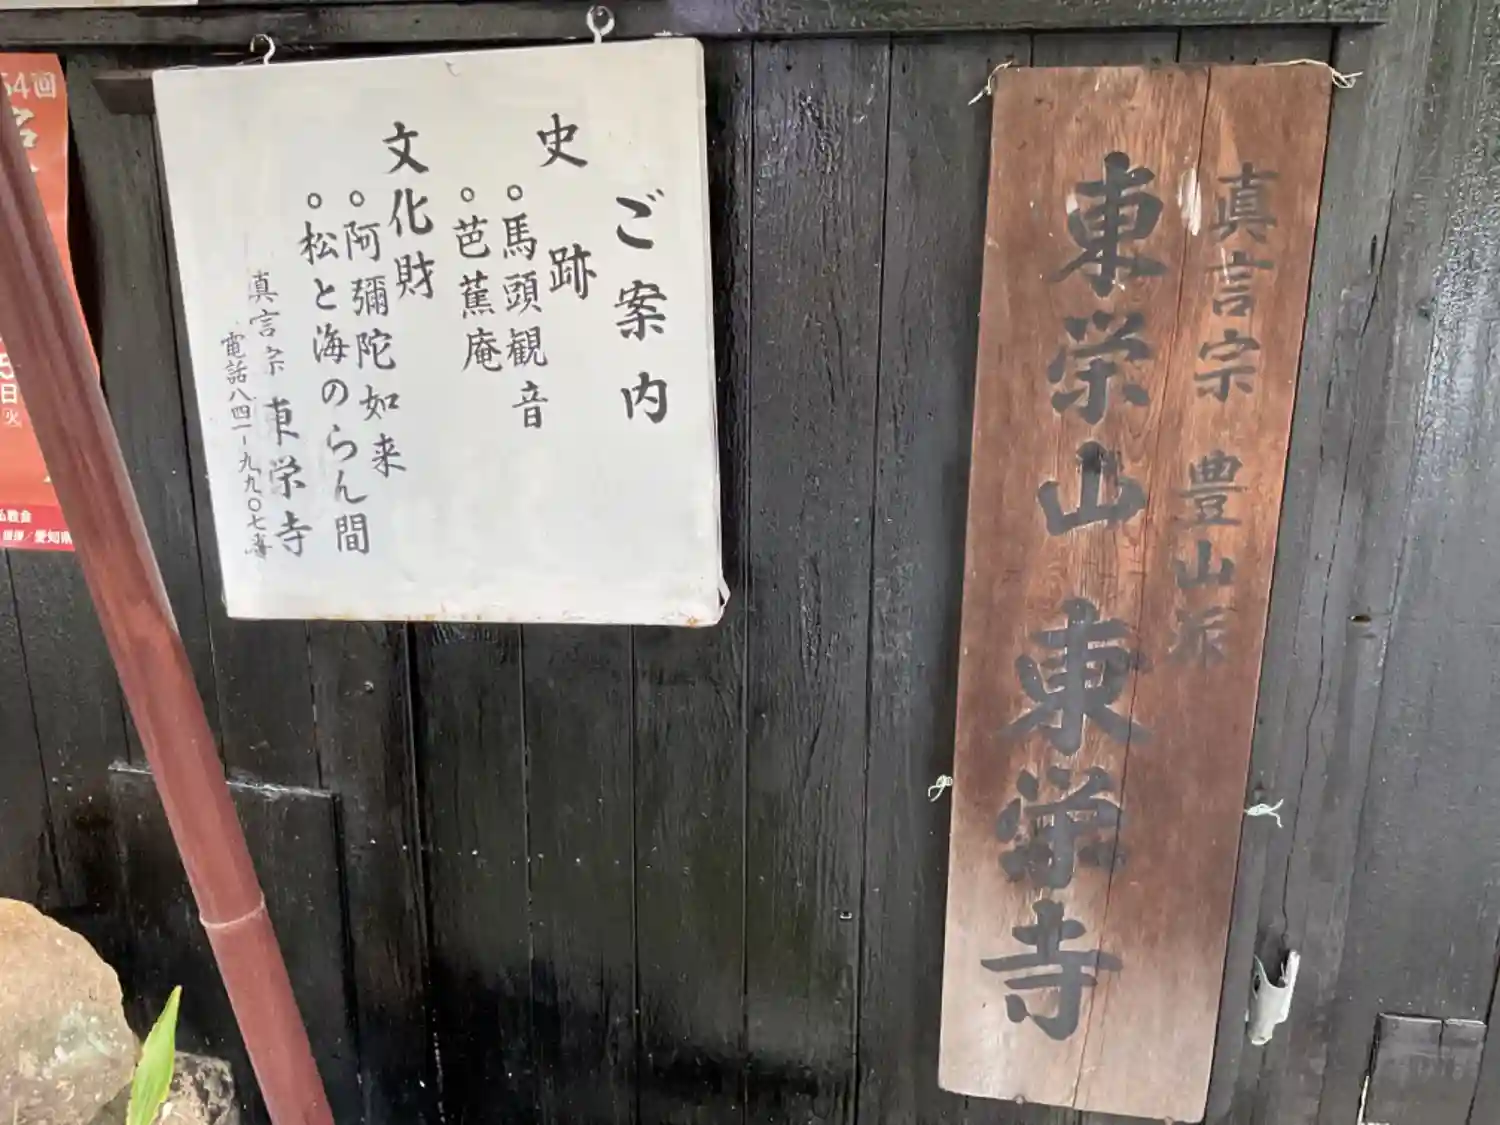 真言宗 豊山派
東栄山 東栄寺
ご案内
史跡
○馬頭観音
○芭蕉庵
文化財
○阿彌陀如来
○松と海のらん間
真言宗 東栄寺
電話八四一-九九〇七番
54回
5
日
火
援/愛知県